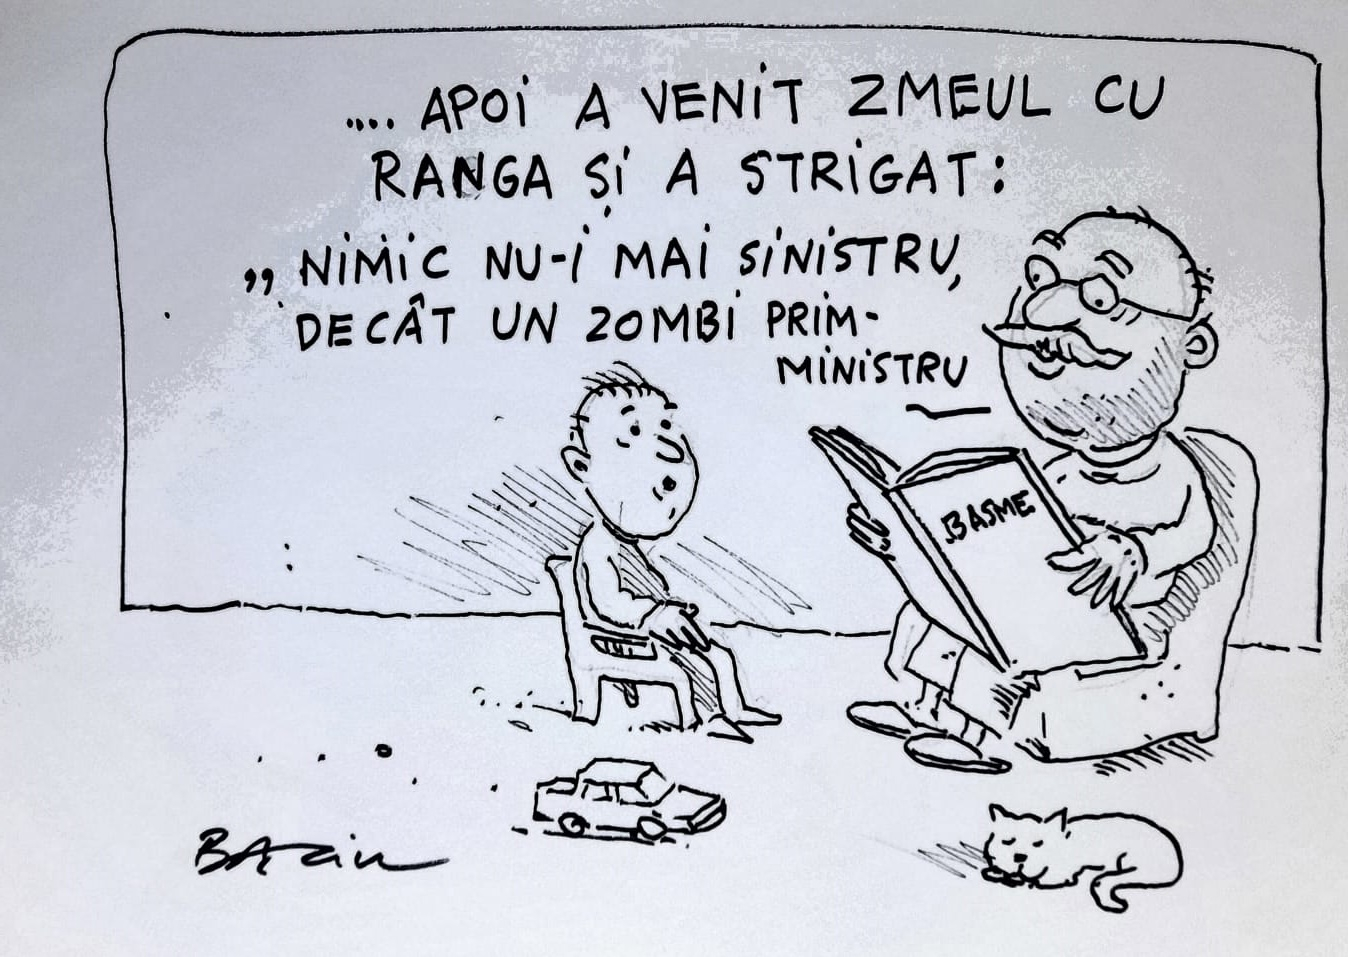 .... APOI A VENIT ZMEUL CU
RANGA ȘI A STRIGAT:
„NIMIC NU-I MAI SINISTRU,
DECÂT UN ZOMBI PRIM-
MINISTRU
BASME